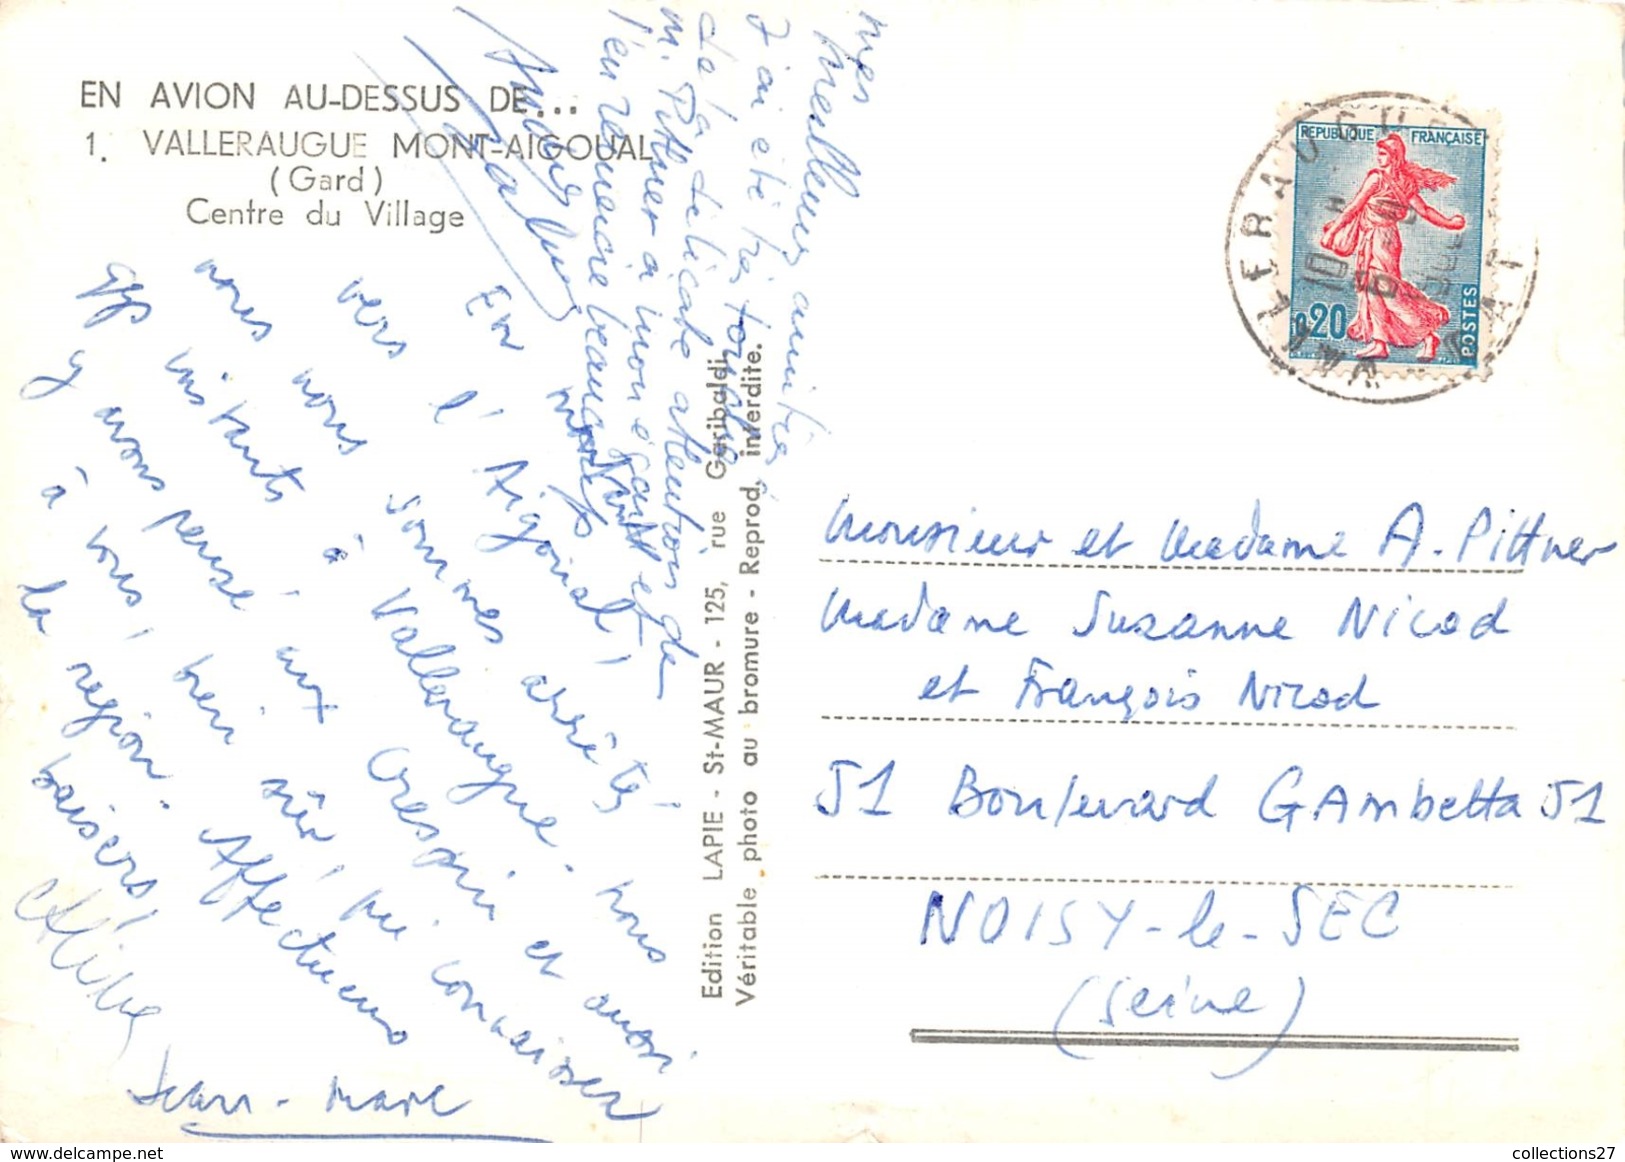 EN AVION AU-DESSUS DE...
1. VALLERAUGUE MONT-AIGOUAL
(Gard)
Centre du Village
En montant
vers l'Aigoual,
nous nous sommes arrêtés
qqs instants à Valleraugue. nous
y avons pensé aux Crespin et aussi
à vous, bien sûr, qui connaissez
la région. Affectueux
baisers,
Aline
Jean-Marc
mes
meilleures amitiés
J'ai été très touché
de la délicate attention de
M. Pittner à mon égard et
l'en remercie beaucoup
Edition LAPIE - St-MAUR - 125, rue Garibaldi.
Véritable photo au bromure - Reprod. interdite.
REPUBLIQUE FRANÇAISE
0,20
POSTES
VALLERAUGUE
Monsieur et Madame A. Pittner
Madame Suzanne Nicod
et François Nicod
51 Boulevard GAmbetta 51
NOISY-le-SEC
(Seine)
collections27